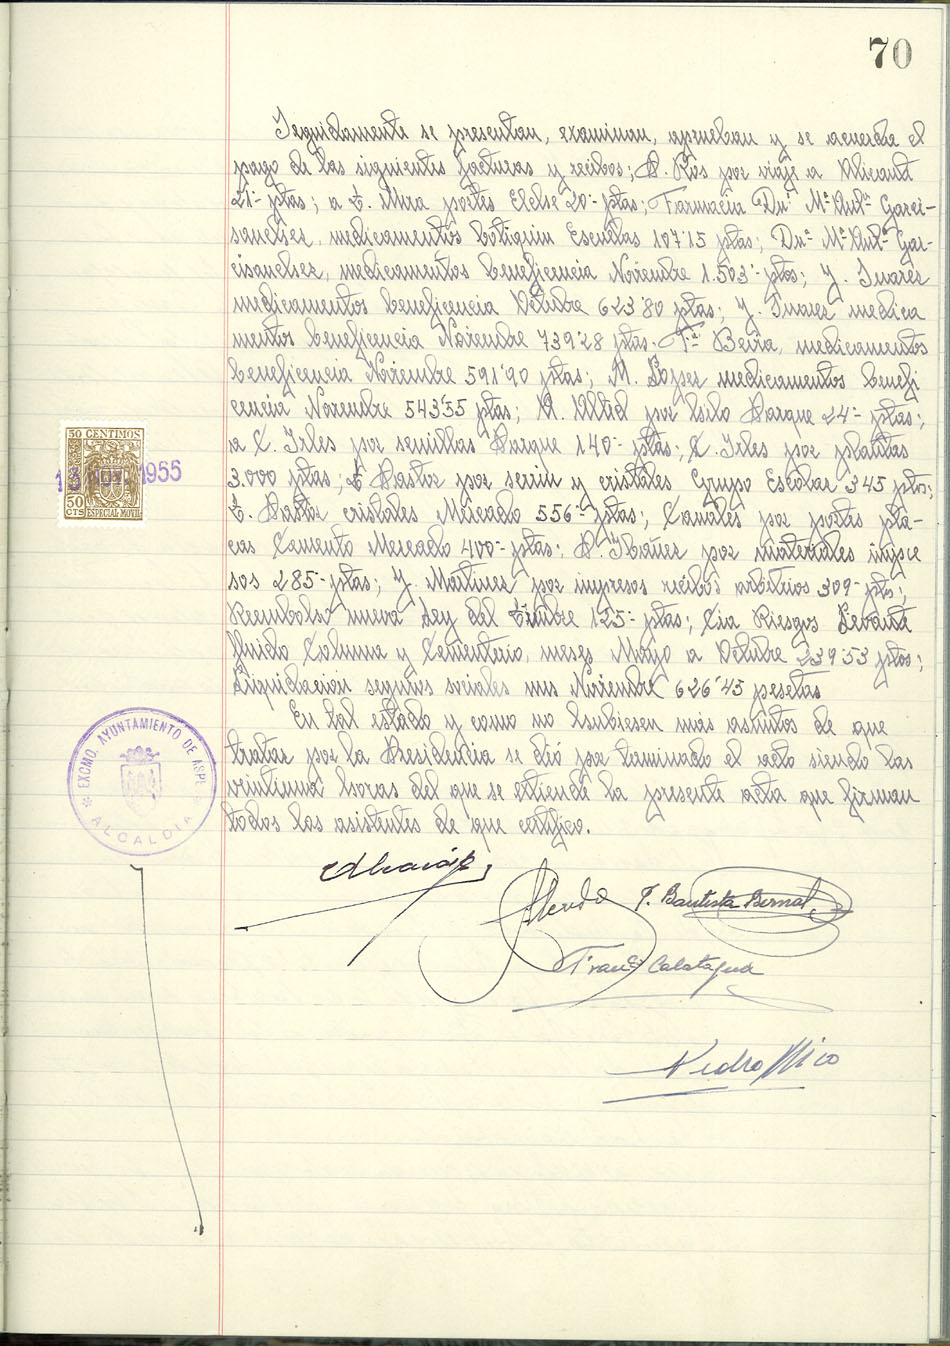 70
Seguidamente se presentan, examinan, aprueban y se acuerda el
pago de las siguientes facturas y recibos; P. Ros por viaje a Alicante
21'- ptas; a E. Mira portes Elche 20'- ptas; Farmacia Dnª Mª Garci-
sanchez, medicamentos botiquin Escuelas 107'15 ptas; Dnª Mª Gar-
cisanchez, medicamentos beneficencia Novienbre 1.503'- ptas; J. Suarez
medicamentos beneficencia Octubre 623'80 ptas; J. Suarez medica
mentos beneficencia Novienbre 739'28 ptas. Fª Beviá, medicamentos
beneficencia Novienbre 591'90 ptas; M. López medicamentos benefi
cencia Novienbre 543'55 ptas; por hilo Parque 24'- ptas;
a C. Irles por semillas Parque 140'- ptas; C. Irles por plantas
3.000 ptas; E. Pastor por serrin y cristales Grupo Escolar 345 ptas;
E. Pastor cristales Mercado 556'- ptas; Canales por portes pla-
cas Cemento Mercado 400'- ptas; P. Ibáñez por materiales impre
sos 285'- ptas; J. Martinez por impresos recibos arbitrios 309'- ptas;
Reembolso nueva Ley del Timbre 125'- ptas; Cia Riegos Levante
Fluido Columna y Cementerio, meses Mayo a Octubre 239'53 ptas;
Liquidación seguros sociales mes Noviembre 626'45 pesetas
En tal estado y como no hubiesen más asuntos de que
tratar por la Presidencia se dió por terminado el acto siendo las
veintiuna horas del que se etiende la presente acta que firman
todos los asistentes de que certifico.
50 CENTIMOS
1955
50
CTS
ESPECIAL MOVIL
EXCMO. AYUNTAMIENTO DE ASPE
ALCALDIA
J. Bautista Bernal
Franco Calatayud
Pedro Mico